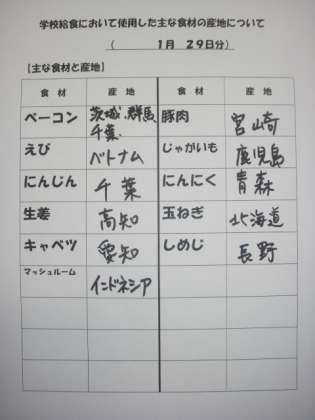 学校給食において使用した主な食材の産地について
（　1月　29日分）
【主な食材と産地】
食材　産地　食材　産地
ベーコン　茨城、群馬　豚肉　宮崎
千葉
えび　ベトナム　じゃがいも　鹿児島
にんじん　千葉　にんにく　青森
生姜　高知　玉ねぎ　北海道
キャベツ　愛知　しめじ　長野
マッシュルーム　インドネシア